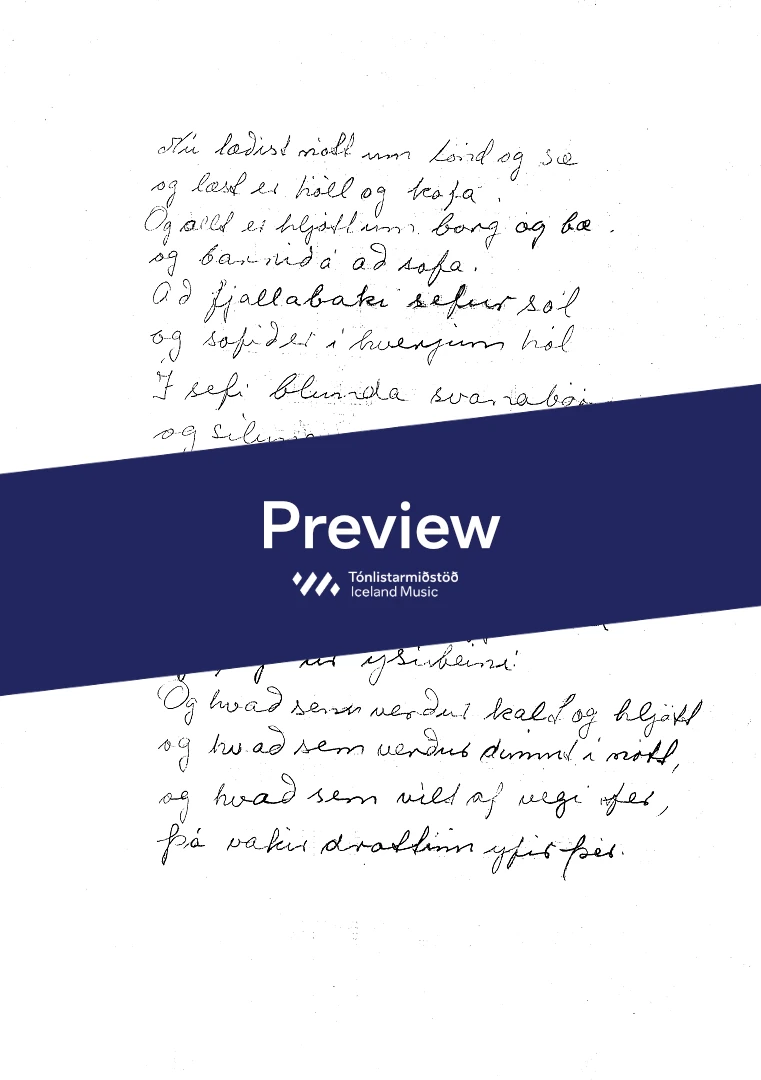 Nú læðist nótt um lönd og sæ
og læst er höll og kofa.
Og allt er hljótt um borg og bæ.
og barnið á að sofa.
Að fjallabaki sefur sól
og sofið er í hverjum hól
Í sefi blunda svanabörn
og silung
Preview
Tónlistarmiðstöð
Iceland Music
úr ýsubeini
Og hvað sem verður kalt og hljótt
og hvað sem verður dimmt í nótt,
og hvað sem villt af vegi fer,
þá vakir drottinn yfir þér.